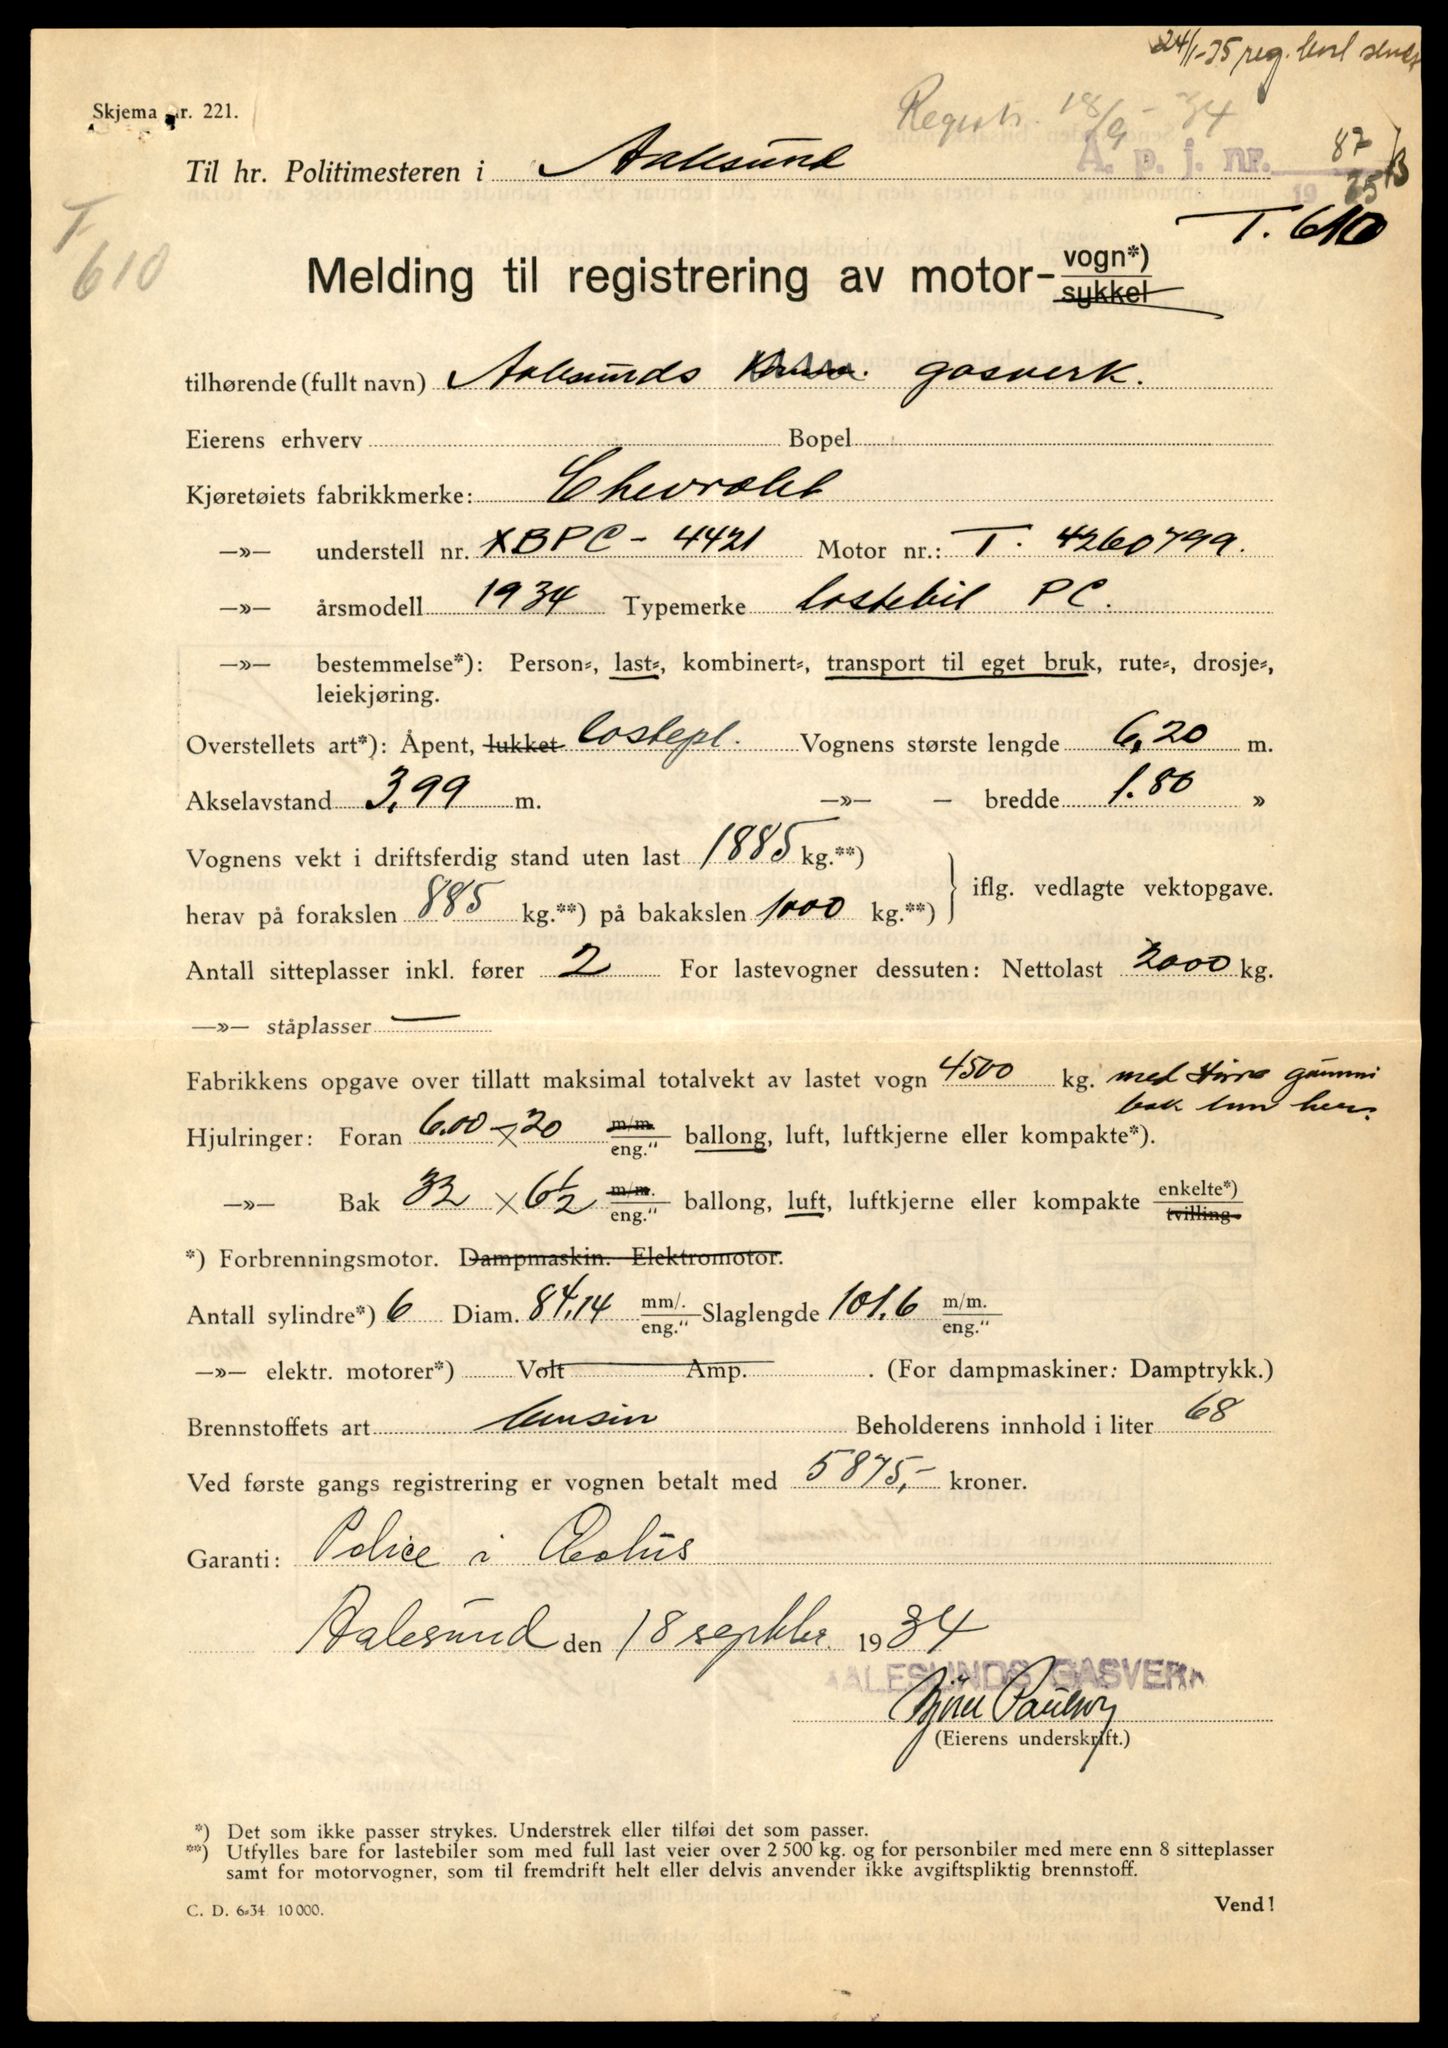 24/1-35 reg.
Skjema nr. 221.
Registr. 18/9-34
Til hr. Politimesteren i Aalesund
A. p. j. nr. 87
19 35
T. 610
T
610
Melding til registrering av motor- vogn*)
sykkel
tilhørende (fullt navn) Aalesunds gasverk.
Eierens erhverv Bopel
Kjøretøiets fabrikkmerke: Chevrolet
—»— understell nr. XBPC - 4421 Motor nr.: T. 4260799.
—»— årsmodell 1934 Typemerke lastebil PC.
—»— bestemmelse*): Person-, last-, kombinert-, transport til eget bruk, rute-, drosje-,
leiekjøring.
Overstellets art*): Åpent, lukket lastepl. Vognens største lengde 6,20 m.
Akselavstand 3,99 m. —»— — bredde 1.80 »
Vognens vekt i driftsferdig stand uten last 1885 kg.**)
herav på forakslen 885 kg.**) på bakakslen 1000 kg.**) } iflg. vedlagte vektopgave.
Antall sitteplasser inkl. fører 2 For lastevogner dessuten: Nettolast 2000 kg.
—»— ståplasser —
Fabrikkens opgave over tillatt maksimal totalvekt av lastet vogn 4500 kg. med større gummi
bak enn her.
Hjulringer: Foran 6.00 × 20 m/m. eng." ballong, luft, luftkjerne eller kompakte*).
—»— Bak 32 × 6½ m/m. eng." ballong, luft, luftkjerne eller kompakte enkelte*) tvilling.
*) Forbrenningsmotor. Dampmaskin. Elektromotor.
Antall sylindre*) 6 Diam. 84,14 mm/. eng." Slaglengde 101.6 m/m. eng."
—»— elektr. motorer*) Volt Amp. . (For dampmaskiner: Damptrykk.)
Brennstoffets art bensin Beholderens innhold i liter 68
Ved første gangs registrering er vognen betalt med 5875,- kroner.
Garanti: Police i Æolus
Aalesund den 18 septbr. 1934
AALESUNDS GASVERK
(Eierens underskrift.)
*) Det som ikke passer strykes. Understrek eller tilføi det som passer.
**) Utfylles bare for lastebiler som med full last veier over 2 500 kg. og for personbiler med mere enn 8 sitteplasser
samt for motorvogner, som til fremdrift helt eller delvis anvender ikke avgiftspliktig brennstoff.
C. D. 6-34 10 000.
Vend!